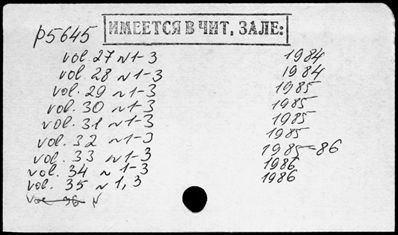 p5645 ИМЕЕТСЯ В ЧИТ. ЗАЛЕ:
vol. 27 N 1-3 1984
vol. 28 N 1-3 1984
vol. 29 N 1-3 1985
vol. 30 N 1-3 1985
vol. 31 N 1-3 1985
vol. 32 N 1-3 1985
vol. 33 N 1-3 1985-86
vol. 34 N 1-3 1986
vol. 35 N 1,3 1986
vol. 36 N